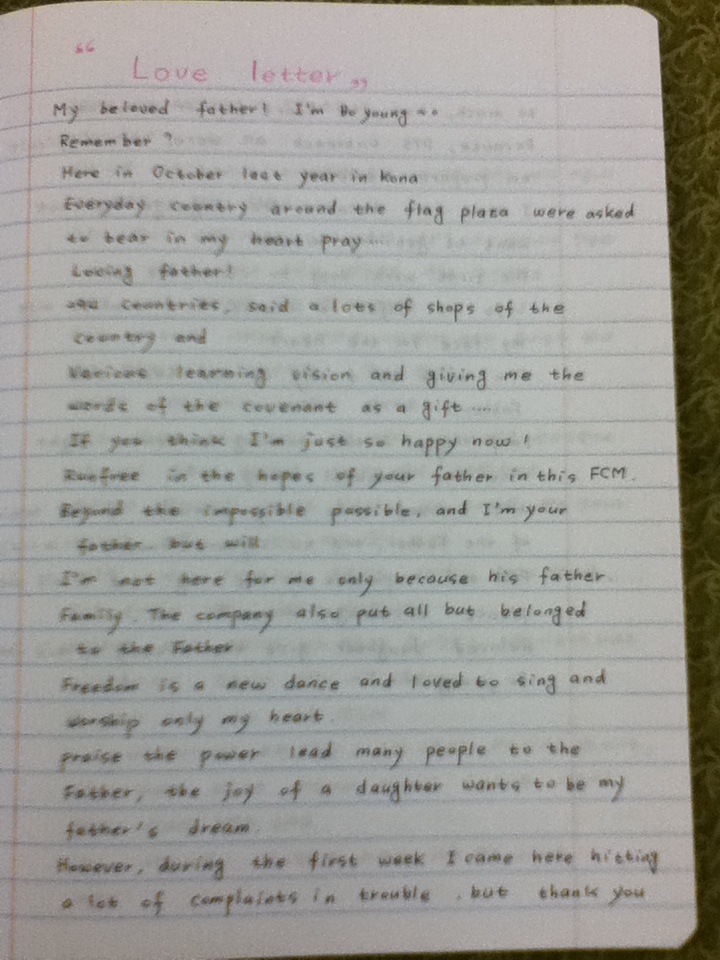 " Love letter "
My beloved father! I'm Do young ~~
Remember?
Here in October last year in Kona
Everyday country around the flag plaza were asked
to bear in my heart pray...
Loving father!
countries, said a lots of shops of the
country and
Various learning vision and giving me the
words of the covenant as a gift ....
If you think I'm just so happy now!
in the hopes of your father in this FCM.
Beyond the impossible possible, and I'm your
father but will
I'm not here for me only because his father
Family. The company also put all but belonged
to the Father
Freedom is a new dance and loved to sing and
worship only my heart.
praise the power lead many people to the
Father, the joy of a daughter wants to be my
father's dream.
However, during the first week I came here hitting
a lot of complaints in trouble. but thank you